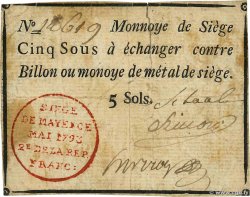 No. 18619 Monnoye de Siège
Cinq Sous à échanger contre
Billon ou monoye de métal de siège.
5 Sols.
SIEGE
DE MAYENCE
MAI 1793
2E DE LA REP
FRANC: